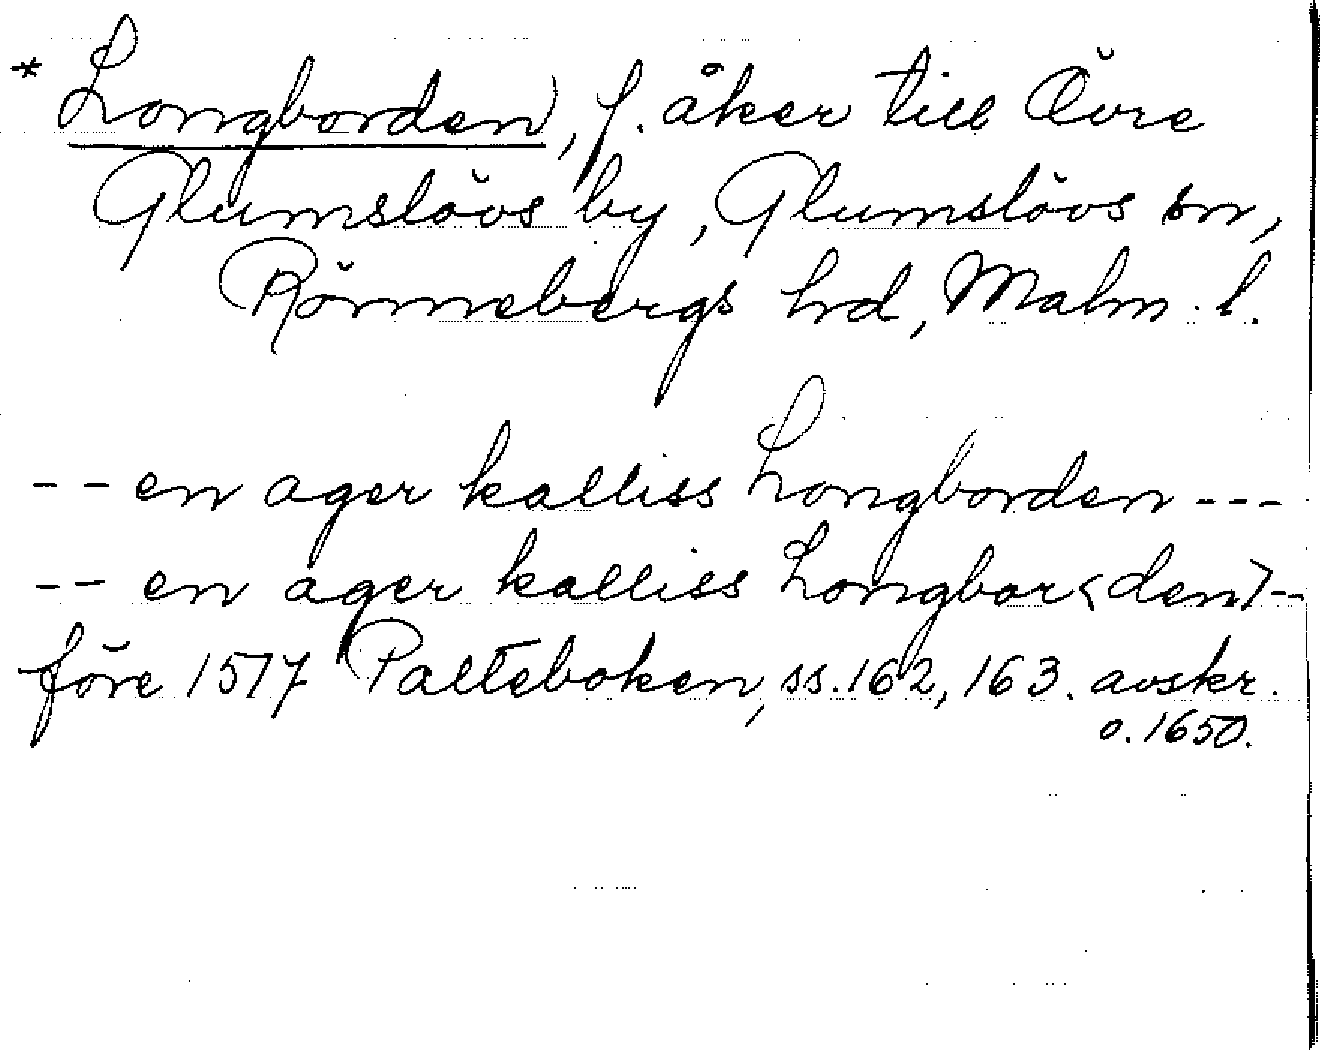 * Longborden, f. åker till Övre
Glumslövs by, Glumslövs sn,
Rönnebergs hrd, Malm. l.
-- en ager kalliss Longborden ---
-- en ager kalliss Longbor<den>--
före 1517 Palteboken, ss. 162, 163. avskr.
o. 1650.